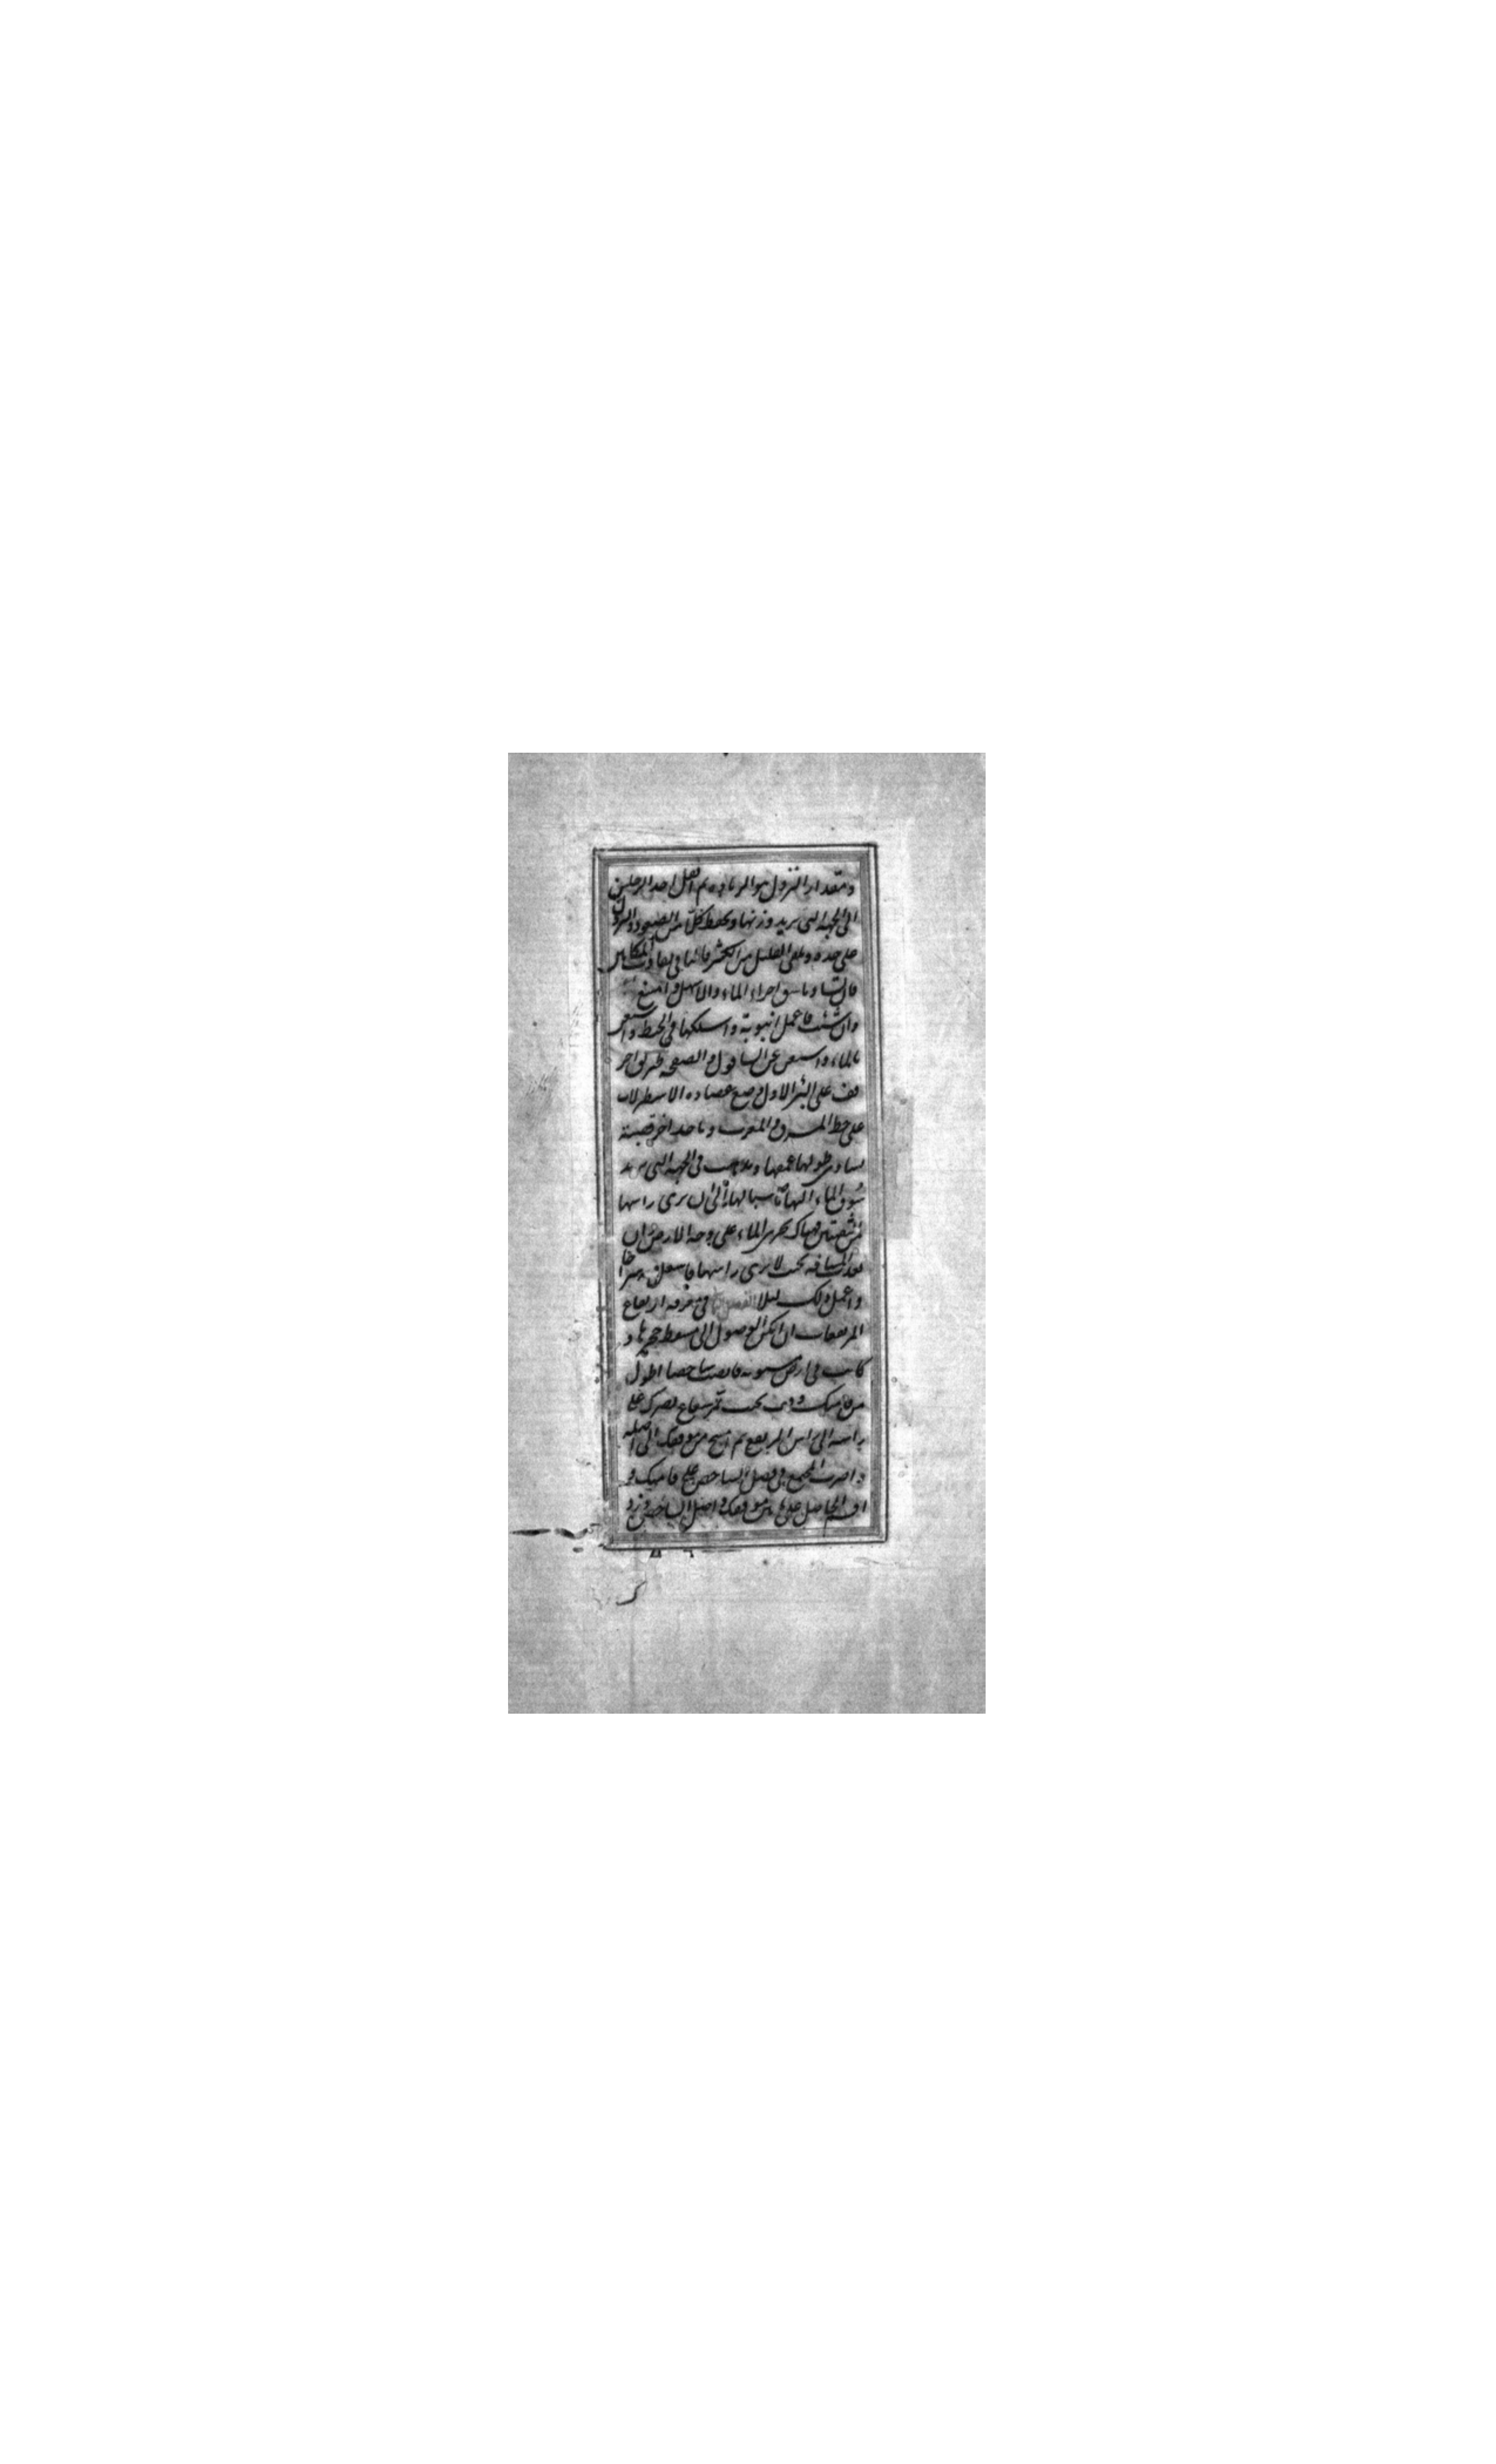 ومقدار النزول هو الزيادة ثم انقل احد الرجلين
الى الجهة التى تريد وزنها وتحفظ كلا من الصعود والنزول
على حدة وتلقى القليل من الكثير فالباقى تفاوت المكانين
فان تساويا شق اجراء الماء والا سهل او امتنع
وان شئت فاعمل انبوبة واسلكها فى الخيط واستعن
بالماء واستغن عن الشاقول والصفحة طريق اخر
قف على البئر الاول وضع عضادة الاسطرلاب
على خط المشرق والمغرب وياخذ اخر قصبة
يساوى طولها عمقها ويذهب فى الجهة التى تريد
سوق الماء اليها ناصبا لها الى ان ترى راسها
من الثقبتين فهناك يجرى الماء على وجه الارض وان
بعدت المسافة بحيث لا يرى راسها فاشعل فيه سراجا
واعمل ذلك ليلا الفصل فى معرفة ارتفاع
المرتفعات ان امكن الوصول الى مسقط حجرها و
كانت فى ارض مستوية فانصب شاخصا اطول
من قامتك وقف بحيث يمر شعاع بصرك على
راسه الى راس المرتفع ثم امسح من موقفك الى اصله
واضرب المجتمع فى فضل الشاخص على قامتك و
اقسم الحاصل على ما بين موقفك واصل الشاخص وزد